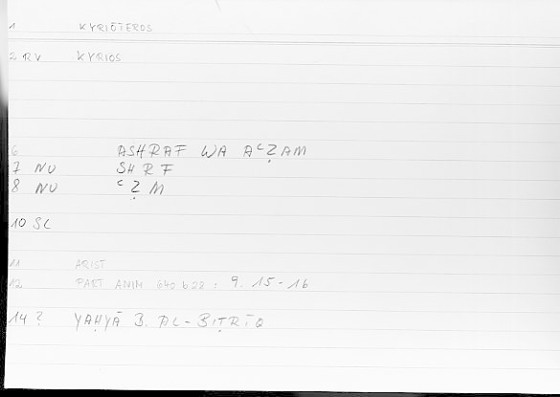 1 KYRIŌTEROS
2 RV KYRIOS
6 ASHRAF WA AᶜẒAM
7 NU SH R F
8 NU ᶜ Ẓ M
10 SL
11 ARIST
12 PART ANIM 640 b 28 : 9. 15-16
14 ? YAḤYĀ B. AL-BIṬRĪQ